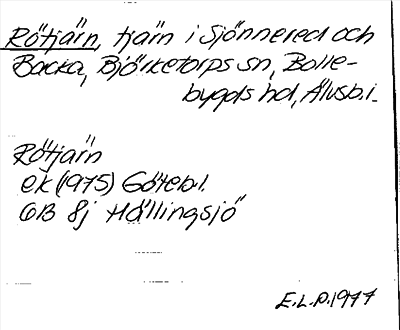 Rötjärn, tjärn i Sjönnered och
Backa, Björketorps sn, Bolle-
bygds hd, Älvsb.l.
Rötjärn
ek (1975) Göteb.l.
6B 8j Hällingsjö
E.L.P.1977